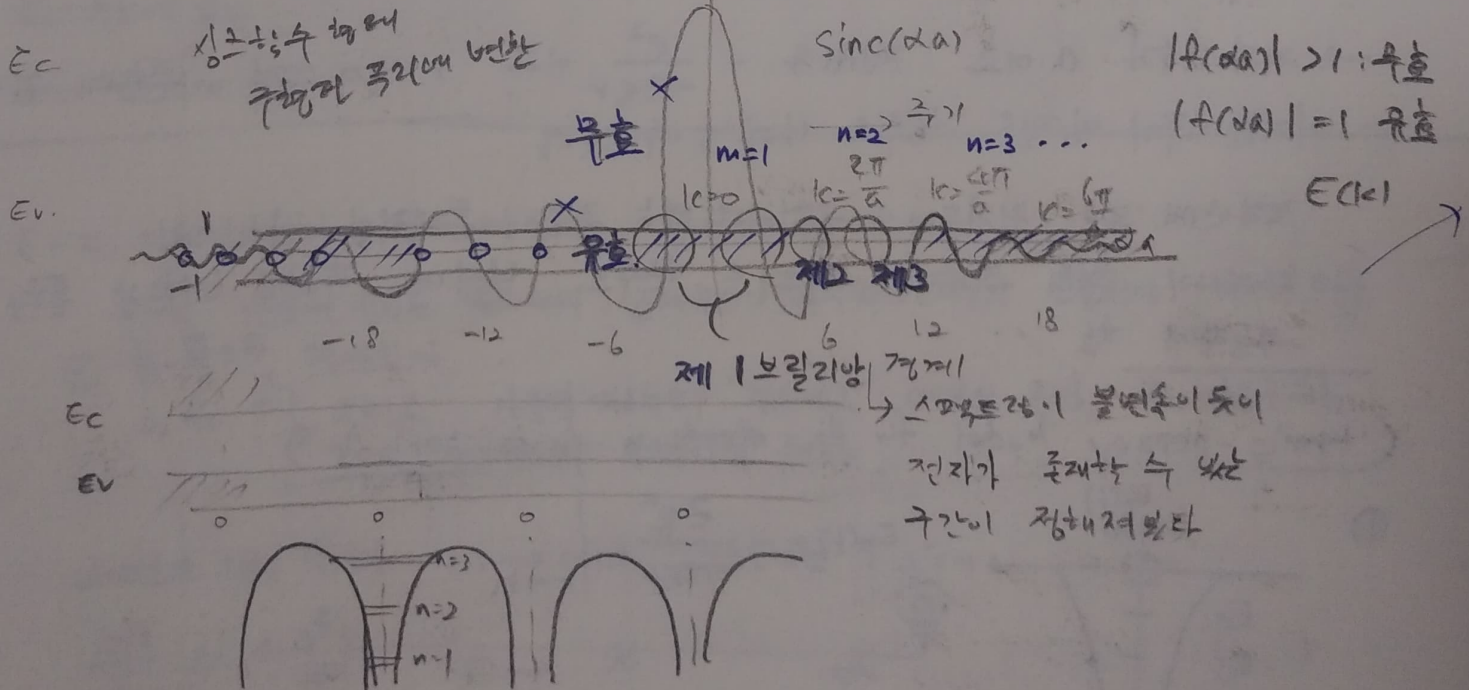 Ec
싱크함수 형태
구형파 푸리에 변환
sinc(αa)
|f(αa)| > 1 : 무효
|f(αa)| = 1 유효
E(k)
주기
무효
m=1
n=2
n=3 ...
k=0
k=2π/a
k=4π/a
k=6π
Ev.
1
-1
유효.
제2
제3
-18
-12
-6
6
12
18
제 1 브릴리앙 경계
↳ 스펙트럼이 불연속이듯이
전자가 존재할 수 있는
구간이 정해져있다
Ec
Ev
n=3
n=2
n=1